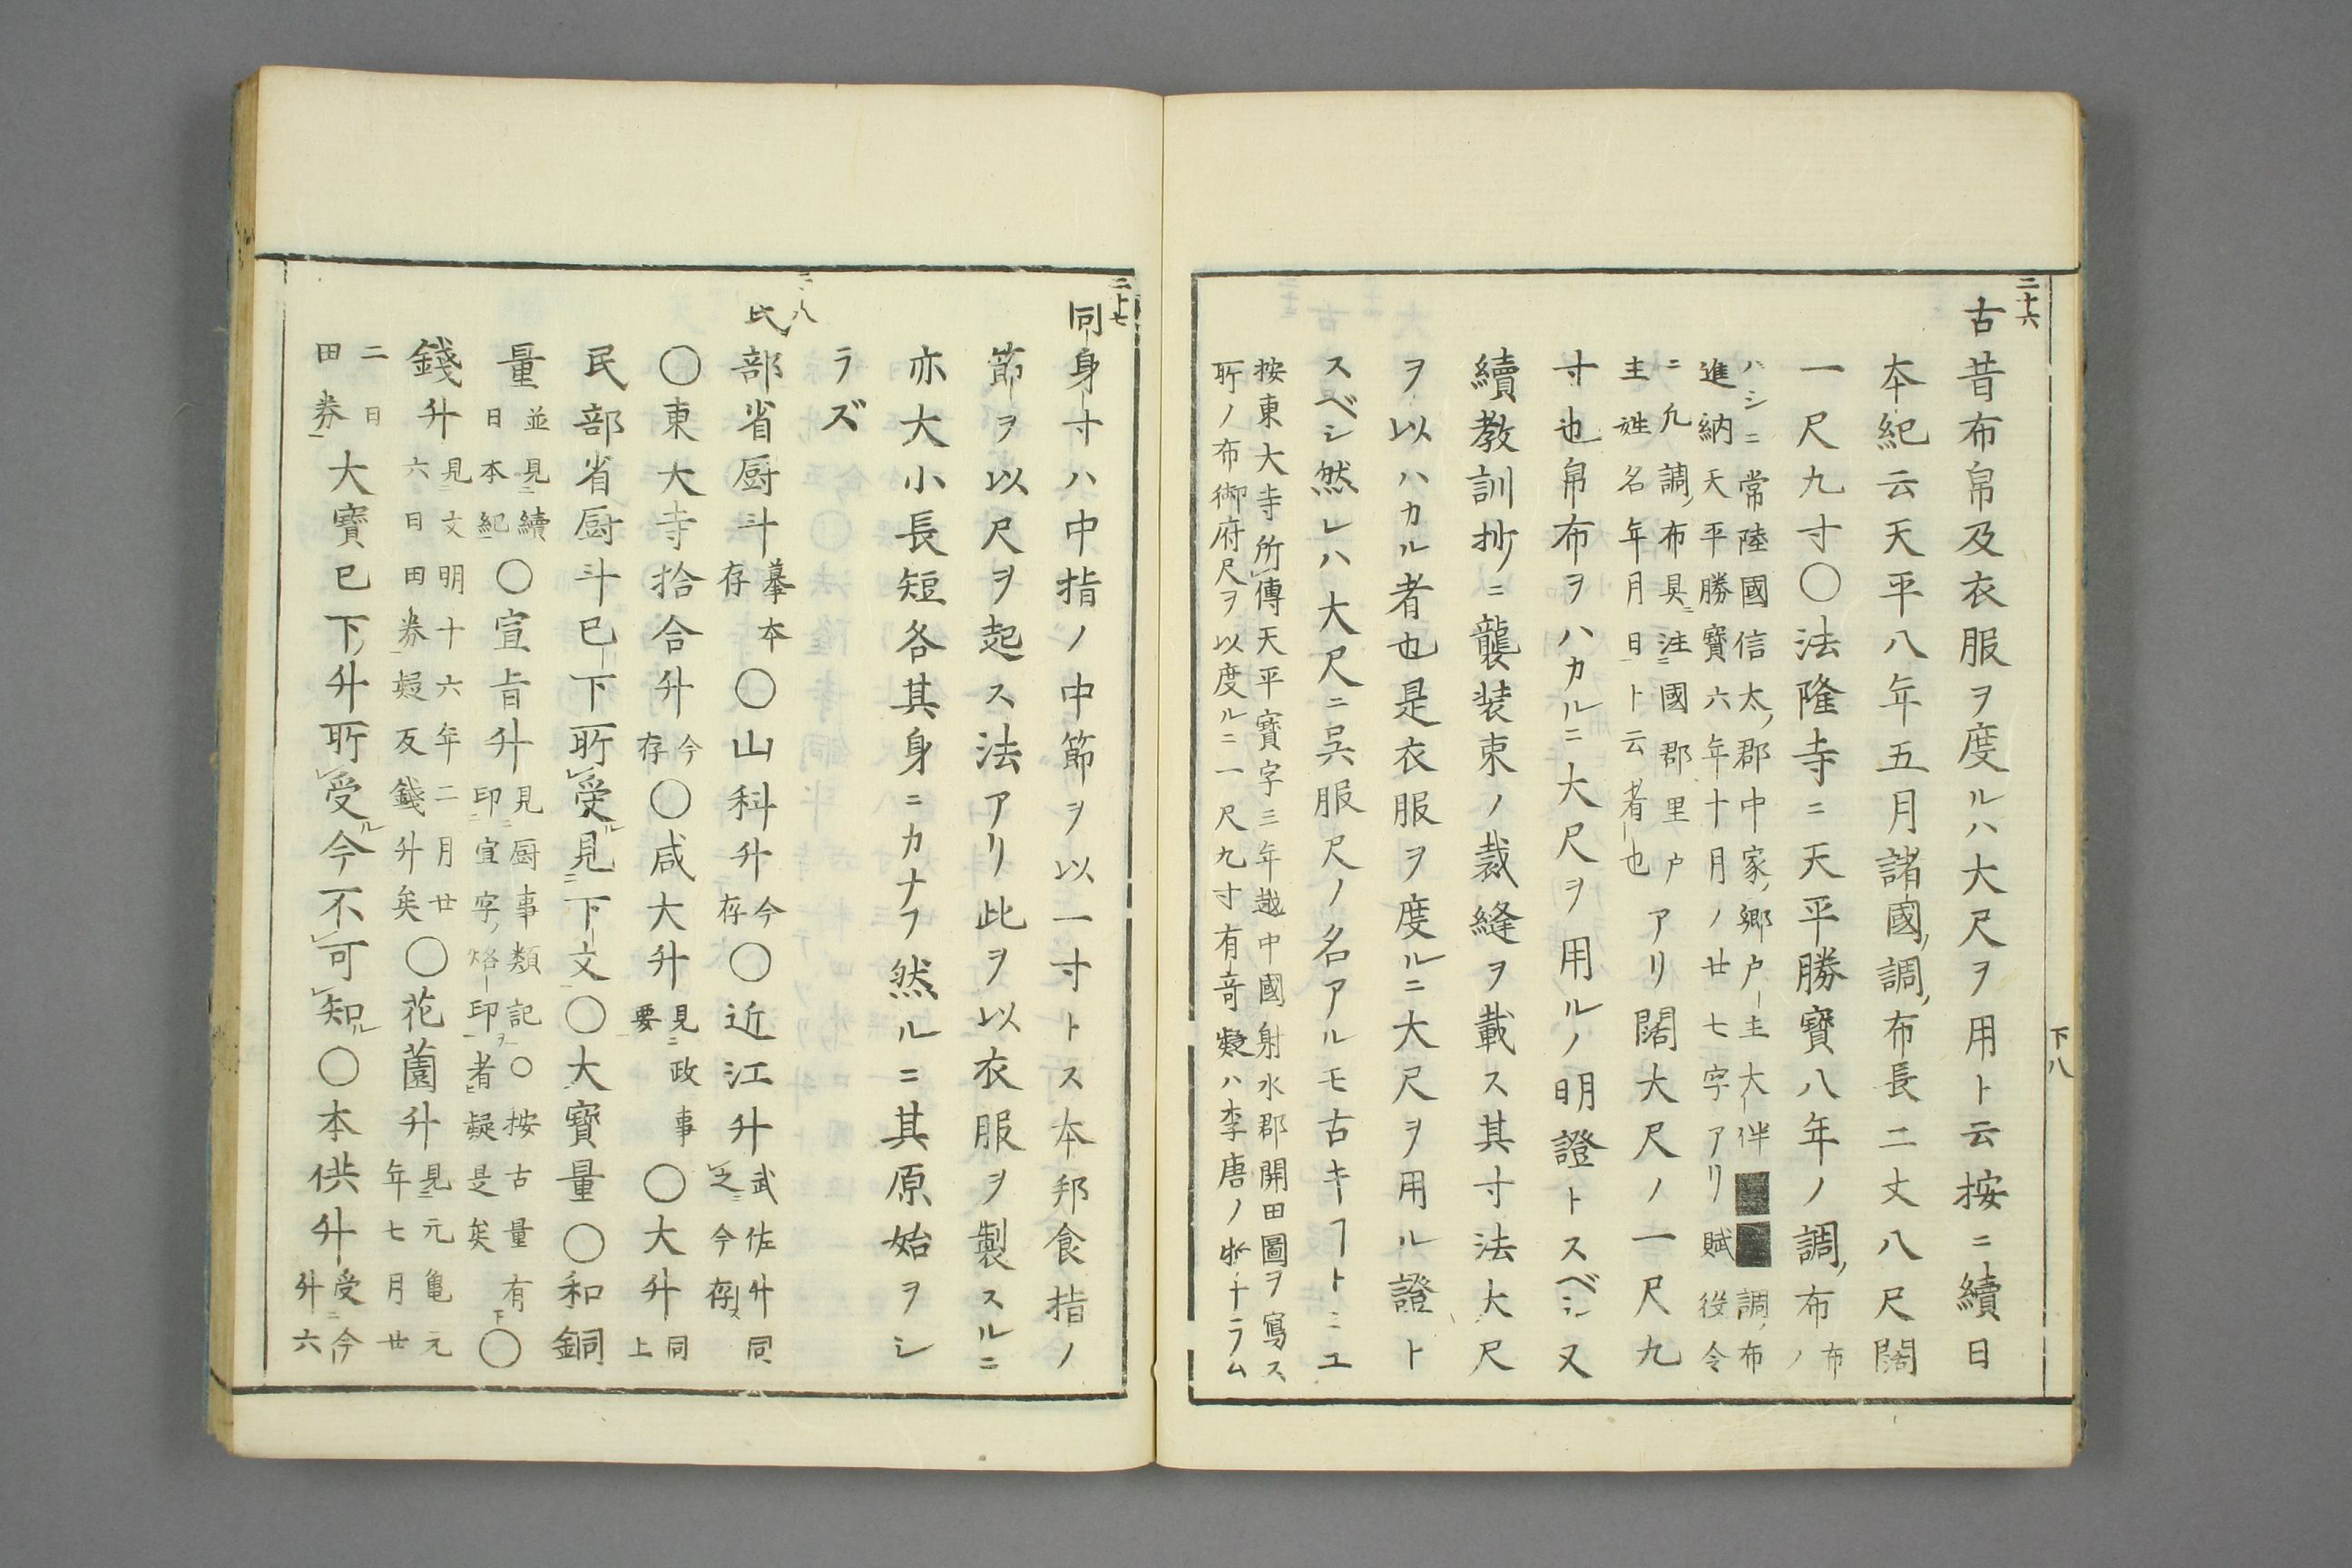 二十六
古昔布帛及衣服ヲ度ルハ大尺ヲ用ト云按ニ續日
本紀云天平八年五月諸國調布長二丈八尺闊
一尺九寸〇法隆寺ニ天平勝寶八年ノ調布布ノ
ハシニ常陸國信太郡中家郷戸主大伴■■調布
進納天平勝寶六年十月ノ廿七字アリ賦役令
ニ凢調布具注國郡里戸
主姓名年月日ト云者也アリ闊大尺ノ一尺九
寸也帛布ヲハカルニ大尺ヲ用ルノ明證トスベシ又
續教訓抄ニ襲装束ノ裁縫ヲ載ス其寸法大尺
ヲ以ハカル者也是衣服ヲ度ルニ大尺ヲ用ル證ト
スベシ然レハ大尺ニ呉服尺ノ名アルモ古キヿトミユ
按東大寺所傳天平寶字三年越中國射水郡開田圖ヲ寫ス
所ノ布御府尺ヲ以度ルニ一尺九寸有奇疑ハ李唐ノ物ナラム
下八
二十七
同身寸ハ中指ノ中節ヲ以一寸トス本邦食指ノ
節ヲ以尺ヲ起ス法アリ此ヲ以衣服ヲ製スルニ
亦大小長短各其身ニカナフ然ルニ其原始ヲシ
ラズ
民部省厨斗摹本存〇山科升今存〇近江升武佐升同之今存ス
〇東大寺拾合升今存〇咸大升見政事要〇大升同上
民部省厨斗巳下所受見下文〇大寶量〇和銅
量並見續日本紀〇宣旨升見厨事類記〇按古量有印宣字烙印者疑是矣〇
錢升見文明十六年二月廿六日田券疑反錢升矣〇花薗升見元亀元年七月廿
二日田券大寶巳下升所受今不可知〇本供升受今升六